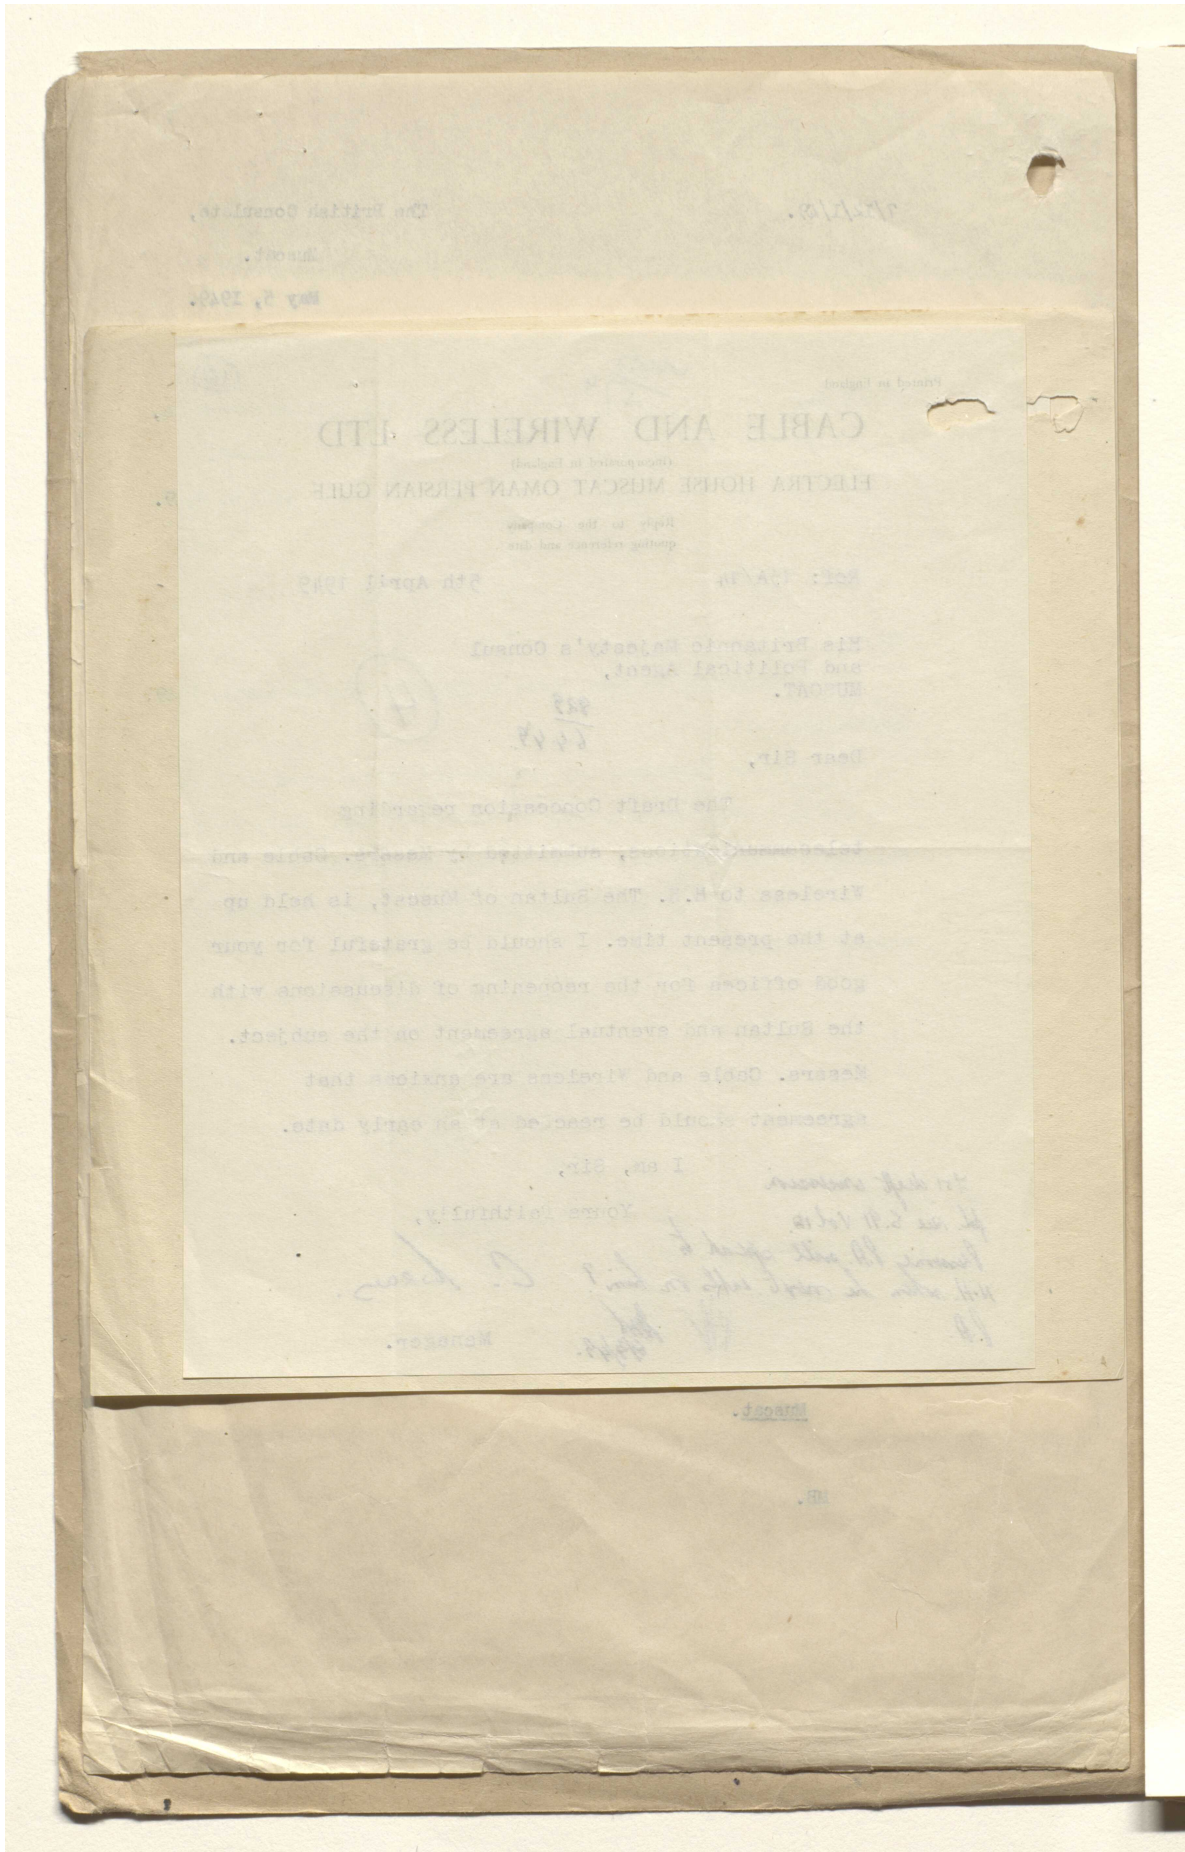 The British Consulate,
Muscat.
May 5, 1949.
Printed in England
CABLE AND WIRELESS LTD
(Incorporated in England)
ELECTRA HOUSE MUSCAT OMAN PERSIAN GULF
Reply to the Company
quoting reference and date
Ref:
5th April 1949
His Britannic Majesty's Consul
and Political Agent,
MUSCAT.
Dear Sir,
The Draft Concession regarding
telecommunications, submitted by Messrs. Cable and
Wireless to H.H. The Sultan of Muscat, is held up
at the present time. I should be grateful for your
good offices for the reopening of discussions with
the Sultan and eventual agreement on the subject.
Messrs. Cable and Wireless are anxious that
agreement should be reached at an early date.
I am, Sir,
Yours faithfully,
Manager.
P.A. will speak to
H.H. when he next calls on him?
P.A.
Muscat.